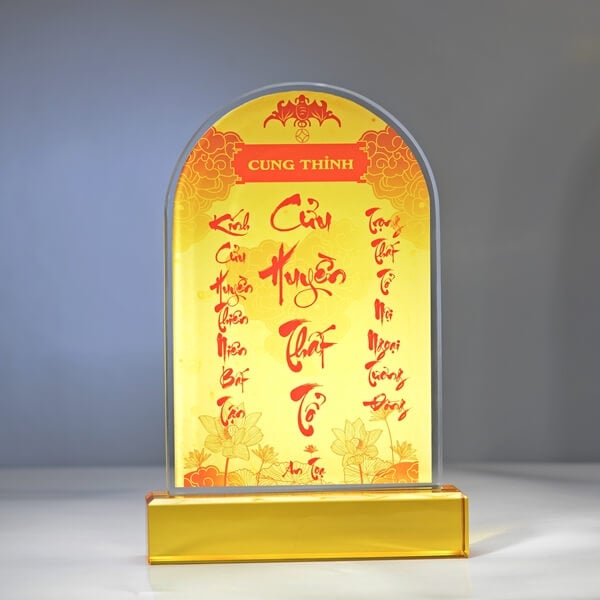 CUNG THỈNH
Kính
Cửu
Huyền
Thiên
Niên
Bất
Tận
Cửu
Huyền
Thất
Tổ
An Tọa
Trọng
Thất
Tổ
Nội
Ngoại
Tương
Đồng